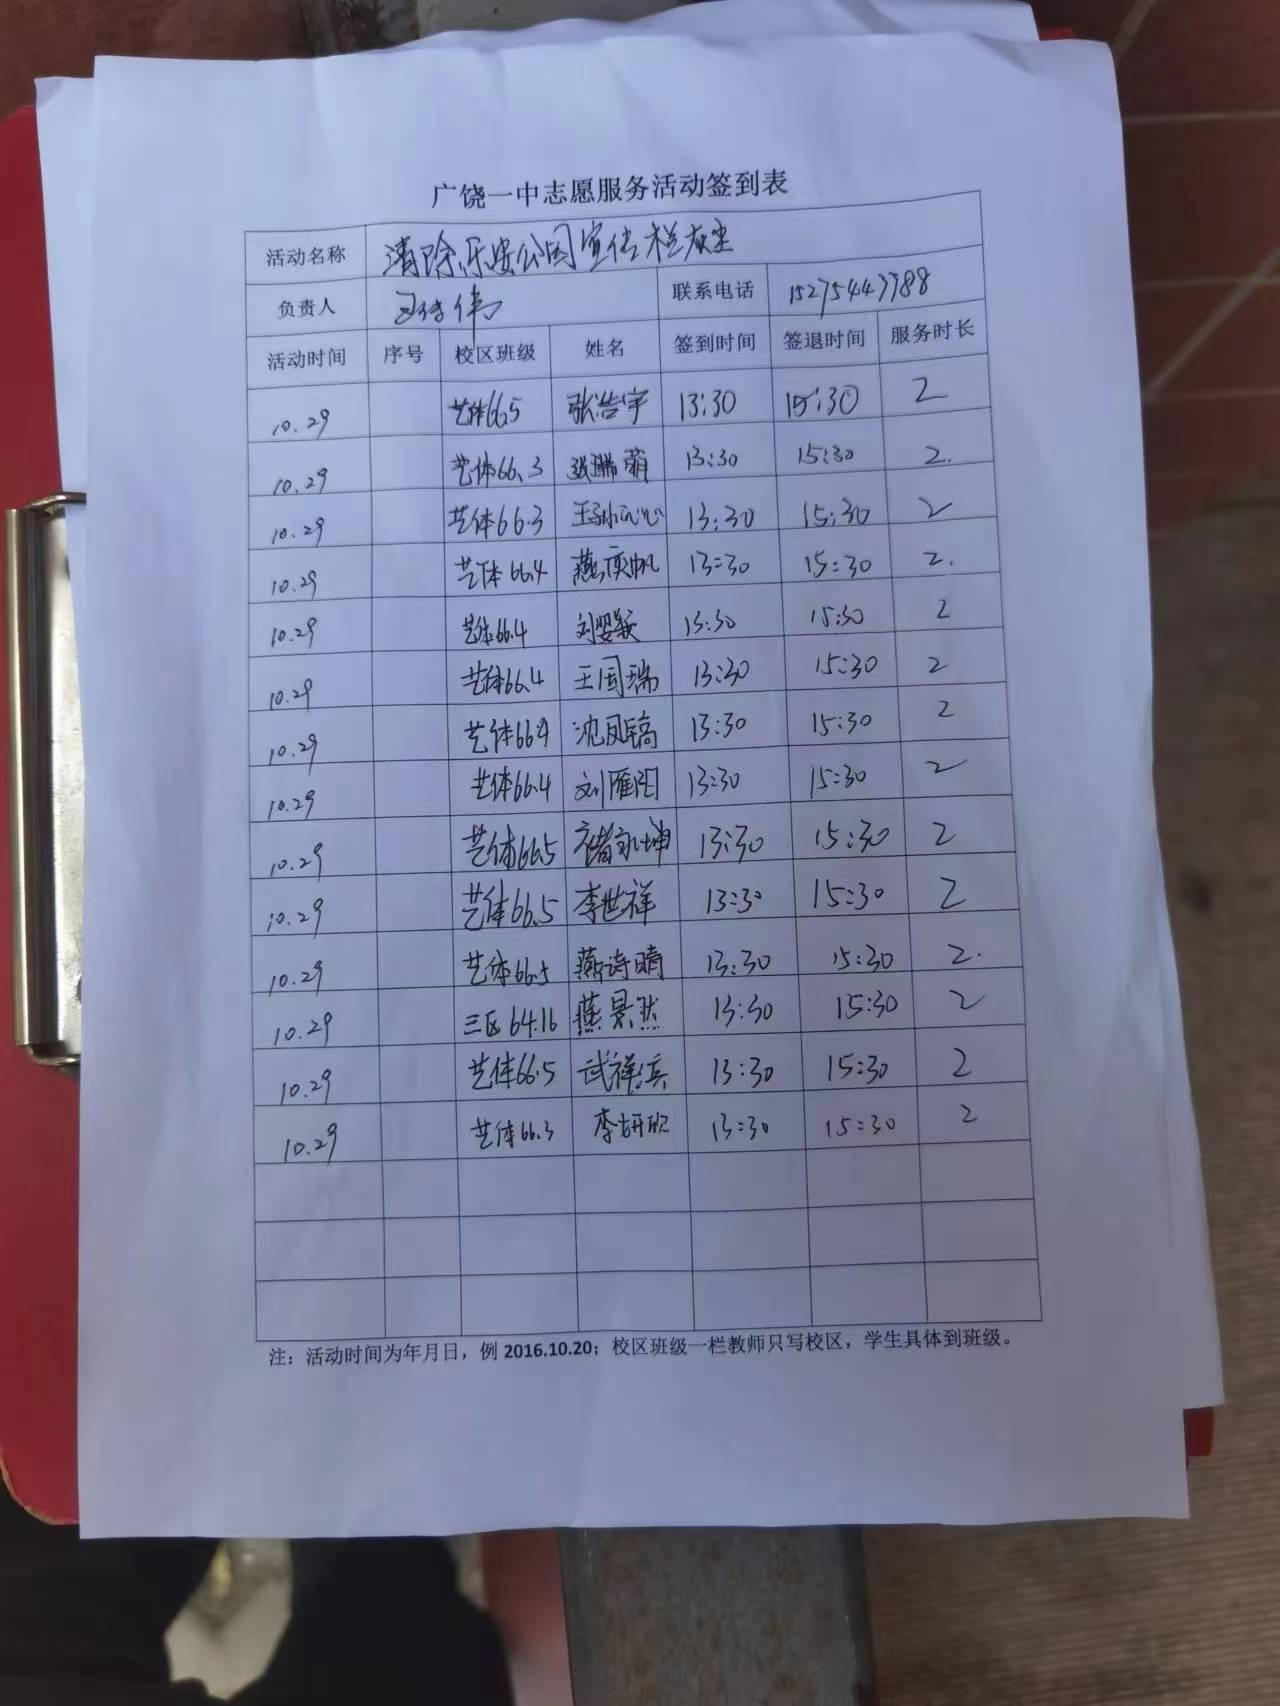 广饶一中志愿服务活动签到表
活动名称 清除乐安公园宣传栏灰尘
负责人 联系电话 15275443788
活动时间 序号 校区班级 姓名 签到时间 签退时间 服务时长
10.29 艺体66.5 张浩宇 13:30 15:30 2
10.29 艺体66.3 张瑞萌 13:30 15:30 2.
10.29 艺体66.3 13:30 15:30 2
10.29 艺体66.4 燕奕帆 13:30 15:30 2.
10.29 艺体66.4 13:30 15:30 2
10.29 艺体66.4 王国瑞 13:30 15:30 2
10.29 艺体66.4 沈凤镐 13:30 15:30 2
10.29 艺体66.4 刘雁阳 13:30 15:30 2
10.29 艺体66.5 13:30 15:30 2
10.29 艺体66.5 李世祥 13:30 15:30 2
10.29 艺体66.5 燕诗晴 13:30 15:30 2.
10.29 三区64.16 燕昊然 13:30 15:30 2
10.29 艺体66.5 武祥滨 13:30 15:30 2
10.29 艺体66.3 李妍欣 13:30 15:30 2
注：活动时间为年月日，例 2016.10.20；校区班级一栏教师只写校区，学生具体到班级。